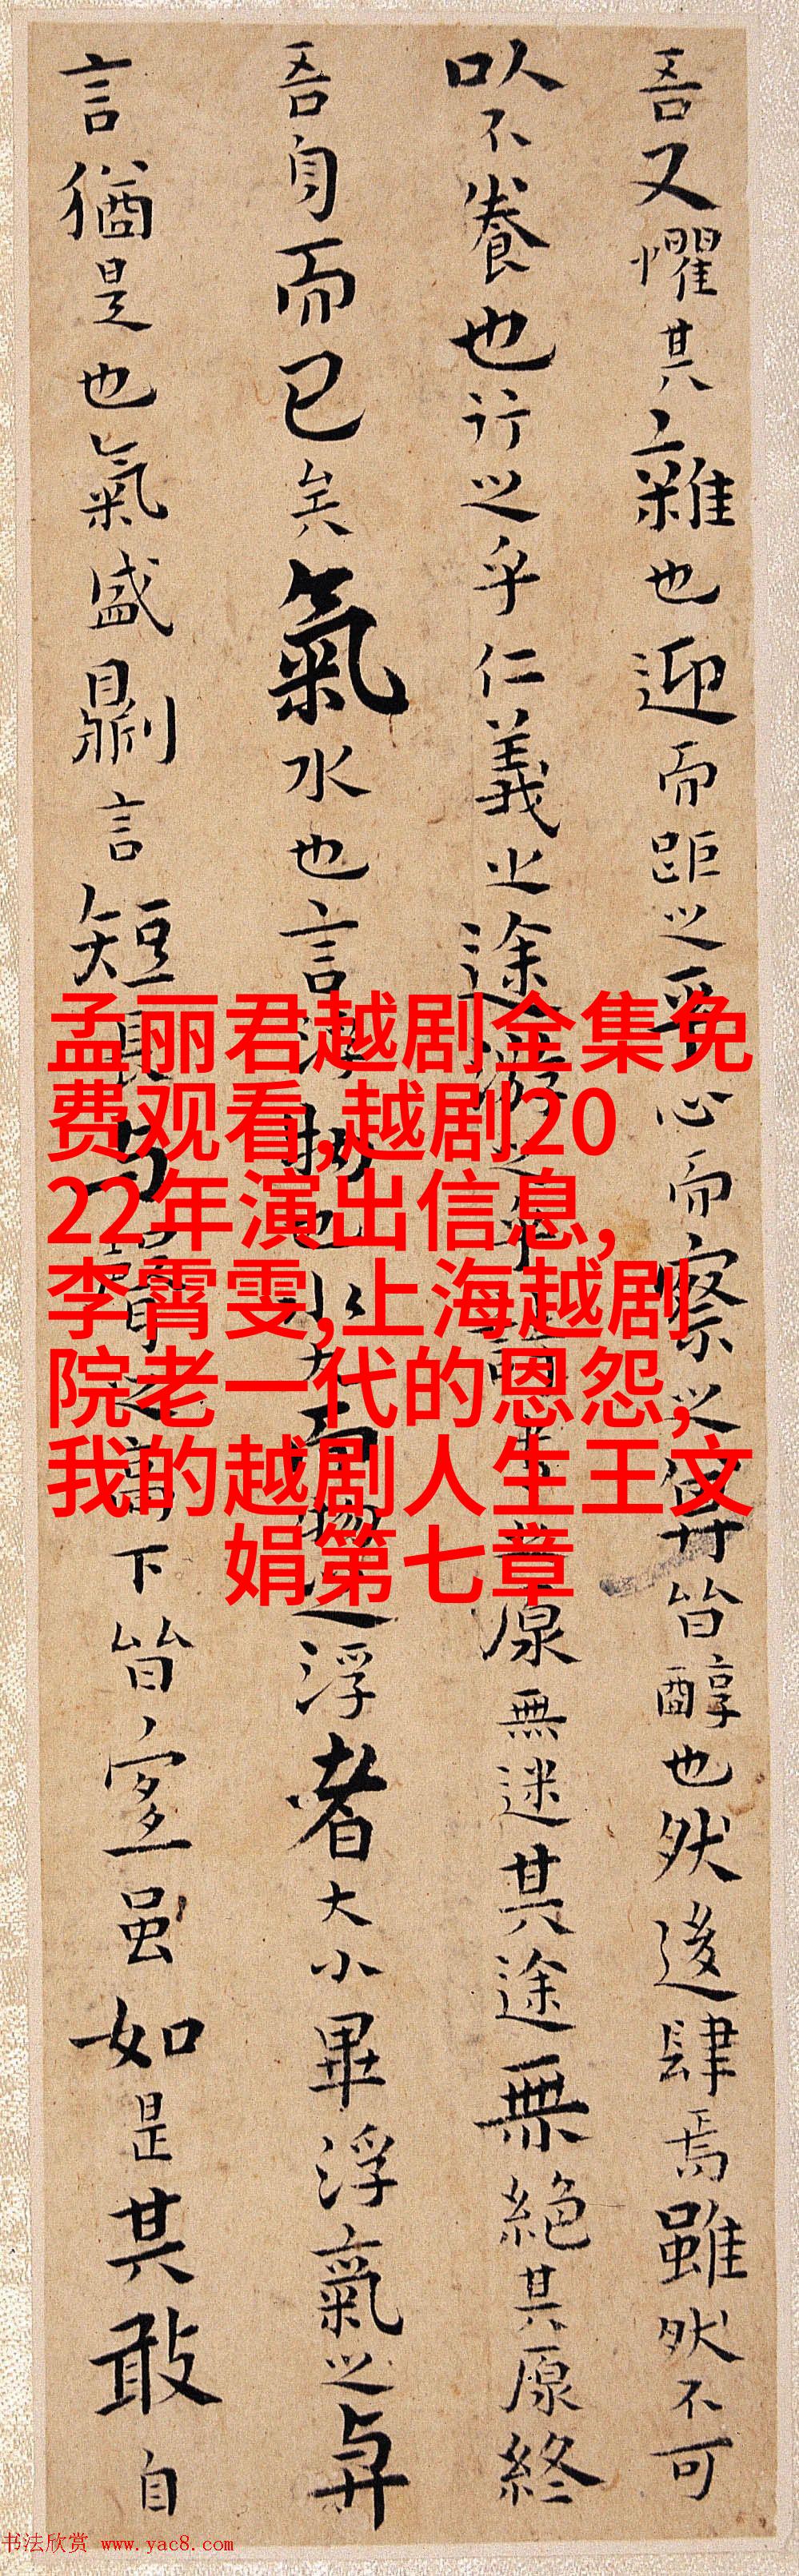 吾又懼其雜也迎而距之平心而察之其皆醇也然後肆焉雖然不可
以不養也行之乎仁義之途游之乎詩書之原無迷其途無絕其原終
吾身而已矣氣水也言浮物也水大而物之浮者大小畢浮氣之與
言猶是也氣盛則言短長与聲之高下皆宜虽如是其敢自
孟丽君越剧全集免
费观看,越剧20
22年演出信息,
李霄雯,上海越剧
院老一代的恩怨,
我的越剧人生王文
娟第七章
书法欣赏 www.yac8.com